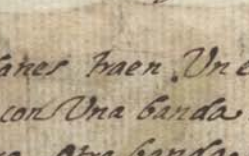 lanes traen Un e
con Una banda
otra banda